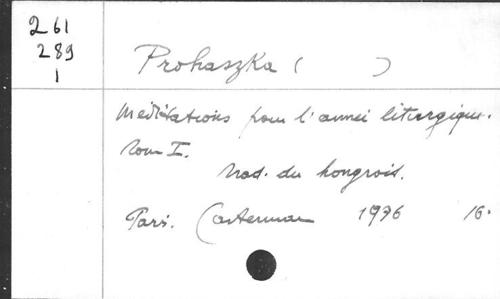 261
289
1
Prohaszka ( )
Méditations pour l'année liturgique.
Tom I.
Trad. du hongrois.
Paris. Casterman 1936 16.